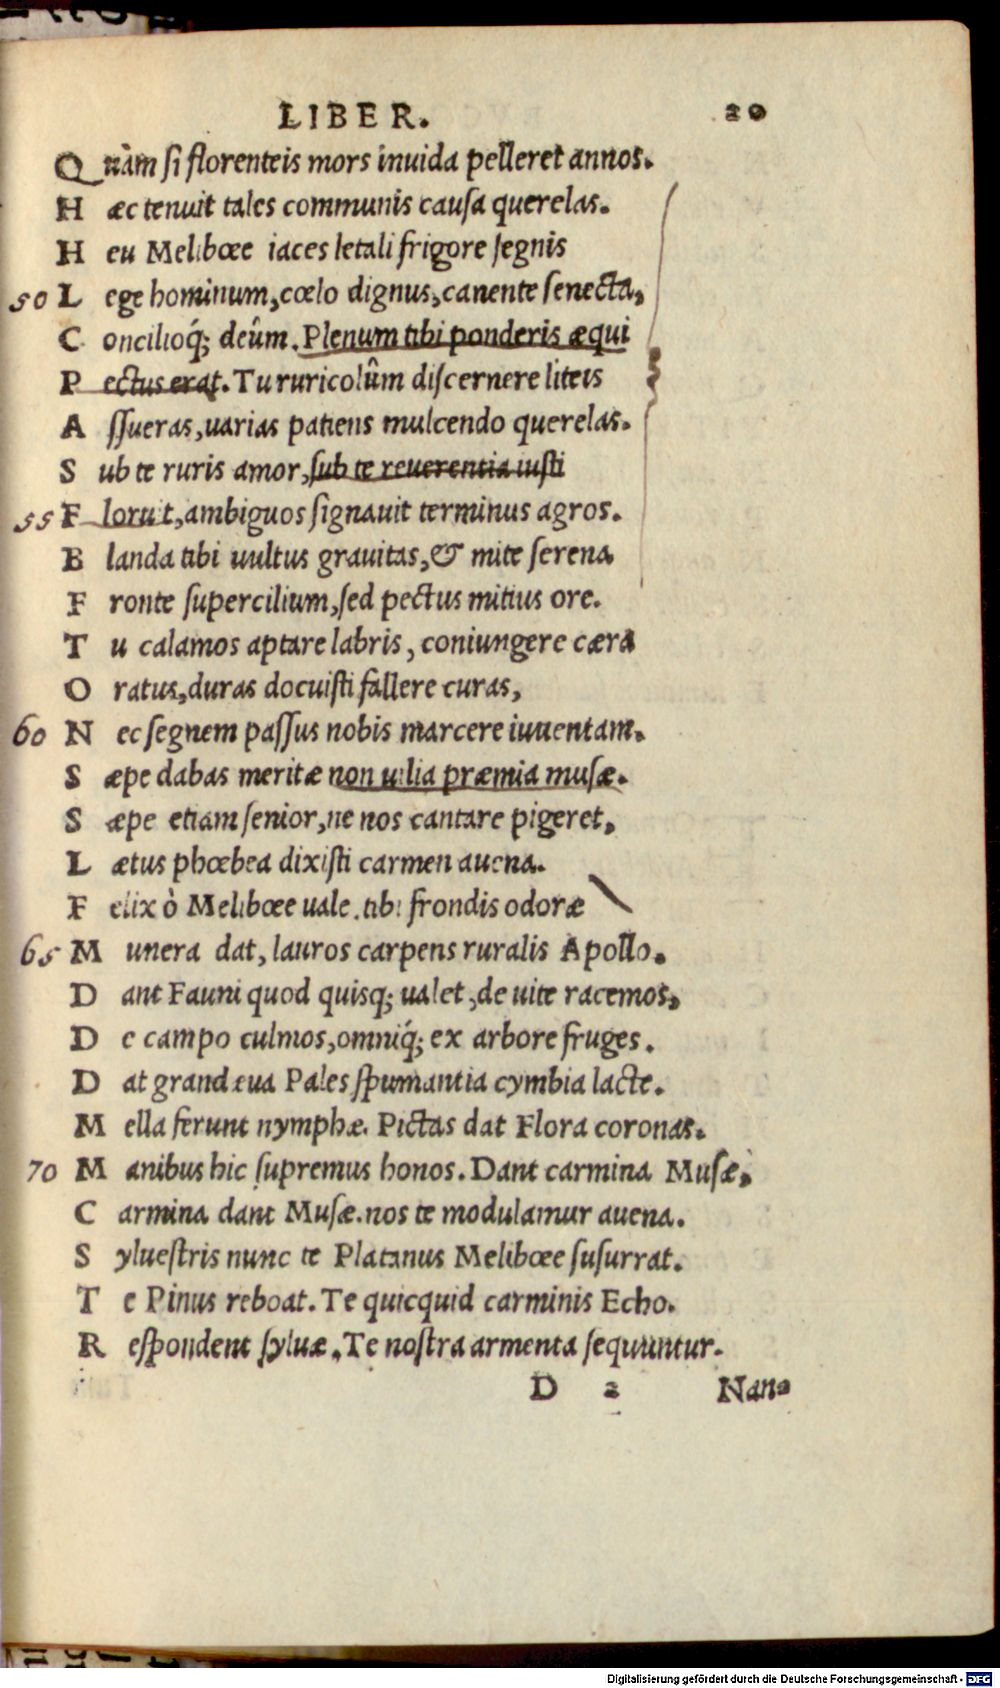 LIBER. 20
Quàm si florenteis mors inuida pelleret annos.
Hæc tenuit tales communis causa querelas.
Heu Melibœe iaces letali frigore segnis
50 Lege hominum, cœlo dignus, canente senecta,
Concilioq́; deûm. Plenum tibi ponderis æqui
Pectus erat. Tu ruricolûm discernere liteis
Assueras, uarias patiens mulcendo querelas.
Sub te ruris amor, sub te reuerentia iusti
55 Floruit, ambiguos signauit terminus agros.
Blanda tibi uultus grauitas, & mite serena
Fronte supercilium, sed pectus mitius ore.
Tu calamos aptare labris, coniungere cæra
Oratus, duras docuisti fallere curas,
60 Nec segnem passus nobis marcere iuuentam.
Sæpe dabas meritæ non uilia præmia musæ.
Sæpe etiam senior, ne nos cantare pigeret,
Lætus phœbea dixisti carmen auena.
Felix ò Melibœe uale. tibi frondis odoræ
65 Munera dat, lauros carpens ruralis Apollo.
Dant Fauni quod quisq; ualet, de uite racemos,
De campo culmos, omniq́; ex arbore fruges.
Dat grandæua Pales spumantia cymbia lacte.
Mella ferunt nymphæ. Pictas dat Flora coronas.
70 Manibus hic supremus honos. Dant carmina Musæ,
Carmina dant Musæ. nos te modulamur auena.
Syluestris nunc te Platanus Melibœe susurrat.
Te Pinus reboat. Te quicquid carminis Echo.
Respondent syluæ. Te nostra armenta sequuntur.
D 2 Nan-
Digitalisierung gefördert durch die Deutsche Forschungsgemeinschaft - DFG